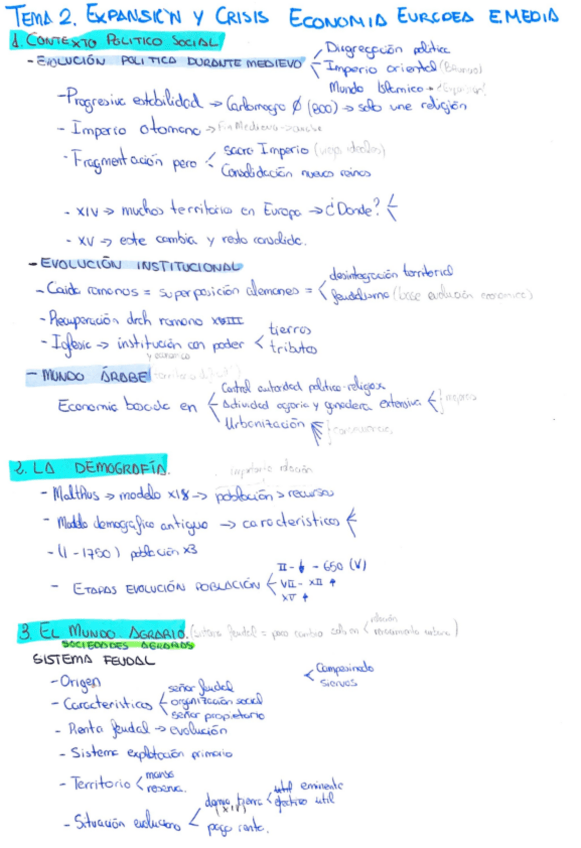 TEMA 2. EXPANSIÓN Y CRISIS ECONOMIA EUROPEA E.MEDIA
1. CONTEXTO POLITICO SOCIAL
- EVOLUCIÓN POLITICA DURANTE MEDIEVO
Disgregación politica
Imperio oriental (Bizancio)
Mundo Islamico
- Progresiva estabilidad → Carlomagno Ø (800) → solo una religión
- Imperio otomano → Fin Medievo
- Fragmentación pero
Sacro Imperio
Consolidación nuevos reinos
- XIV → muchos territorios en Europa → ¿Donde?
- XV → este cambia y resto consolida.
- EVOLUCIÓN INSTITUCIONAL
- Caida romanos = superposición alemanes =
desintegración territorial
feudalismo (base evolución económica)
- Recuperación drch romano XVIII
- Iglesia → institución con poder
y económico
tierras
tributos
- MUNDO ÁRABE
Economia basada en
Control autoridad politico-religiosa
Actividad agraria y ganadera extensiva
Urbanización
2. LA DEMOGRAFÍA.
importante relación
- Malthus → modelo X18 → población > recursos
- Modelo demografico antiguo → caracteristicas
- (1 - 1750) población x3
- ETAPAS EVOLUCIÓN POBLACIÓN
II - ↓ - 650 (V)
VII - XII ↑
XV ↑
3. EL MUNDO AGRARIO. (sistema feudal = poco cambio
SOCIEDADES AGRARIAS
SISTEMA FEUDAL
Campesinado
siervos
- Origen
- Caracteristicas
señor feudal
organización social
señor propietario
- Renta feudal → evolución
- Sistema explotación primario
- Territorio
manso
reserva.
- Situación evoluciona
(XIII)
util eminente
efectivo util
pago renta.